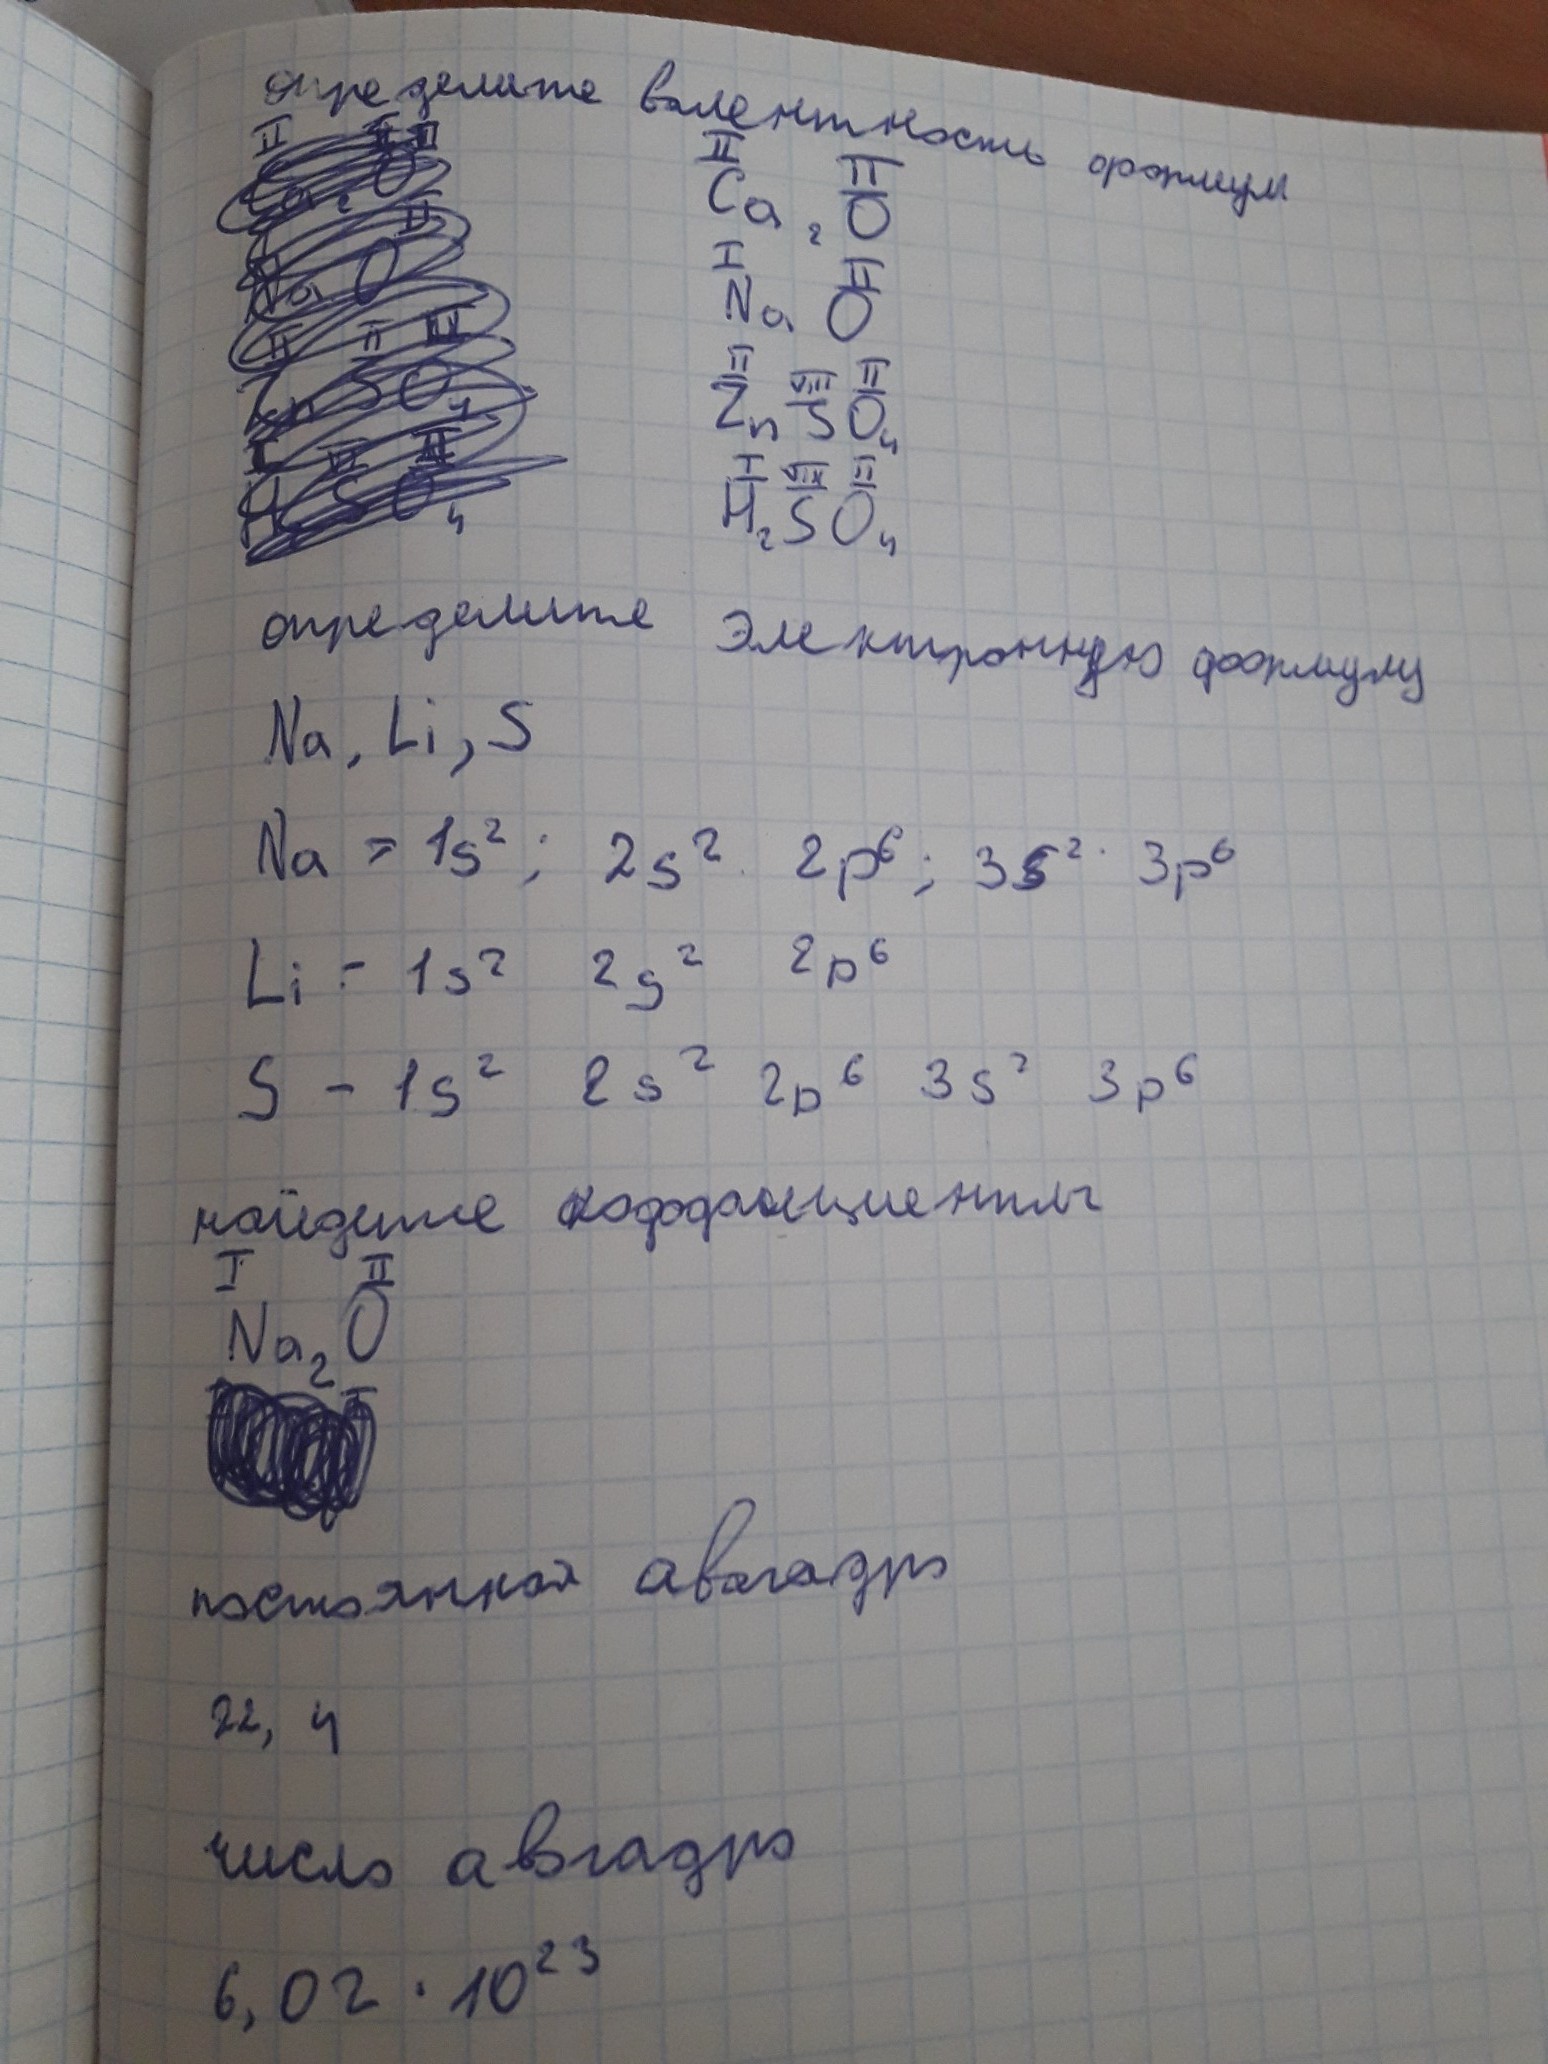 определите валентность формул
II II
Ca2 O
I II
Na O
II VIII II
Zn S O4
I VIII II
H2 S O4
определите электронную формулу
Na, Li, S
Na = 1s² ; 2s² 2p⁶ ; 3s² 3p⁶
Li - 1s² 2s² 2p⁶
S - 1s² 2s² 2p⁶ 3s² 3p⁶
найдите
I II
Na2 O
постоянная авогадро
22, 4
число авогадро
6, 02 · 10²³